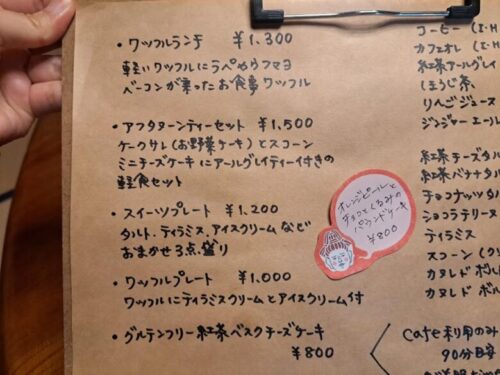 ・ワッフルランチ ¥1,300
軽いワッフルにラペやらフマヨ
ベーコンが乗ったお食事ワッフル
・アフタヌーンティーセット ¥1,500
ケークサレ(お野菜ケーキ)とスコーン
ミニチーズケーキにアールグレイティー付きの
軽食セット
・スイーツプレート ¥1,200
タルト、ティラミス、アイスクリームなど
おまかせ3点盛り
・ワッフルプレート ¥1,000
ワッフルにティラミスクリームとアイスクリーム付
・グルテンフリー紅茶バスクチーズケーキ
¥800
オレンジピールと
チョコとくるみの
パウンドケーキ
¥800
コーヒー (I・H
カフェオレ (I・H
紅茶アールグレイ
ほうじ茶
りんごジュース
ジンジャーエール
紅茶チーズタル
紅茶バナナタル
チョコナッツタル
ショコラテリーヌ
ティラミス
スコーン (クリ
カヌレドボル
カヌレドボル
Cafe利用のみ
90分目安